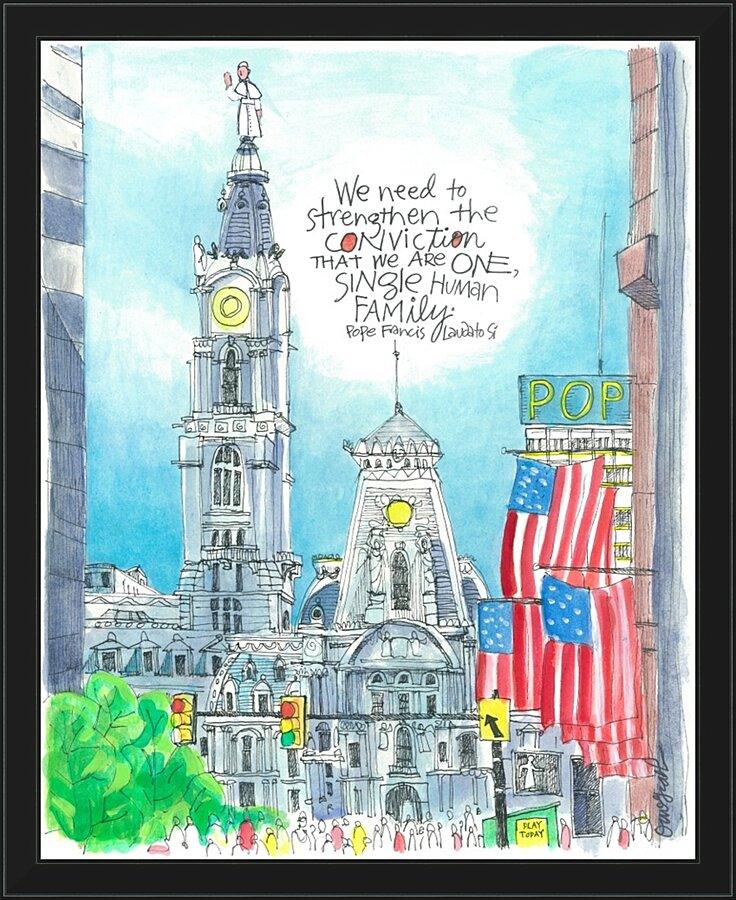 We need to
strengthen the
CONViction
THAT WE ARE ONE,
SINGLE HUMAN
FAMily.
Pope Francis Laudato Si
POP
PLAY
TODAY